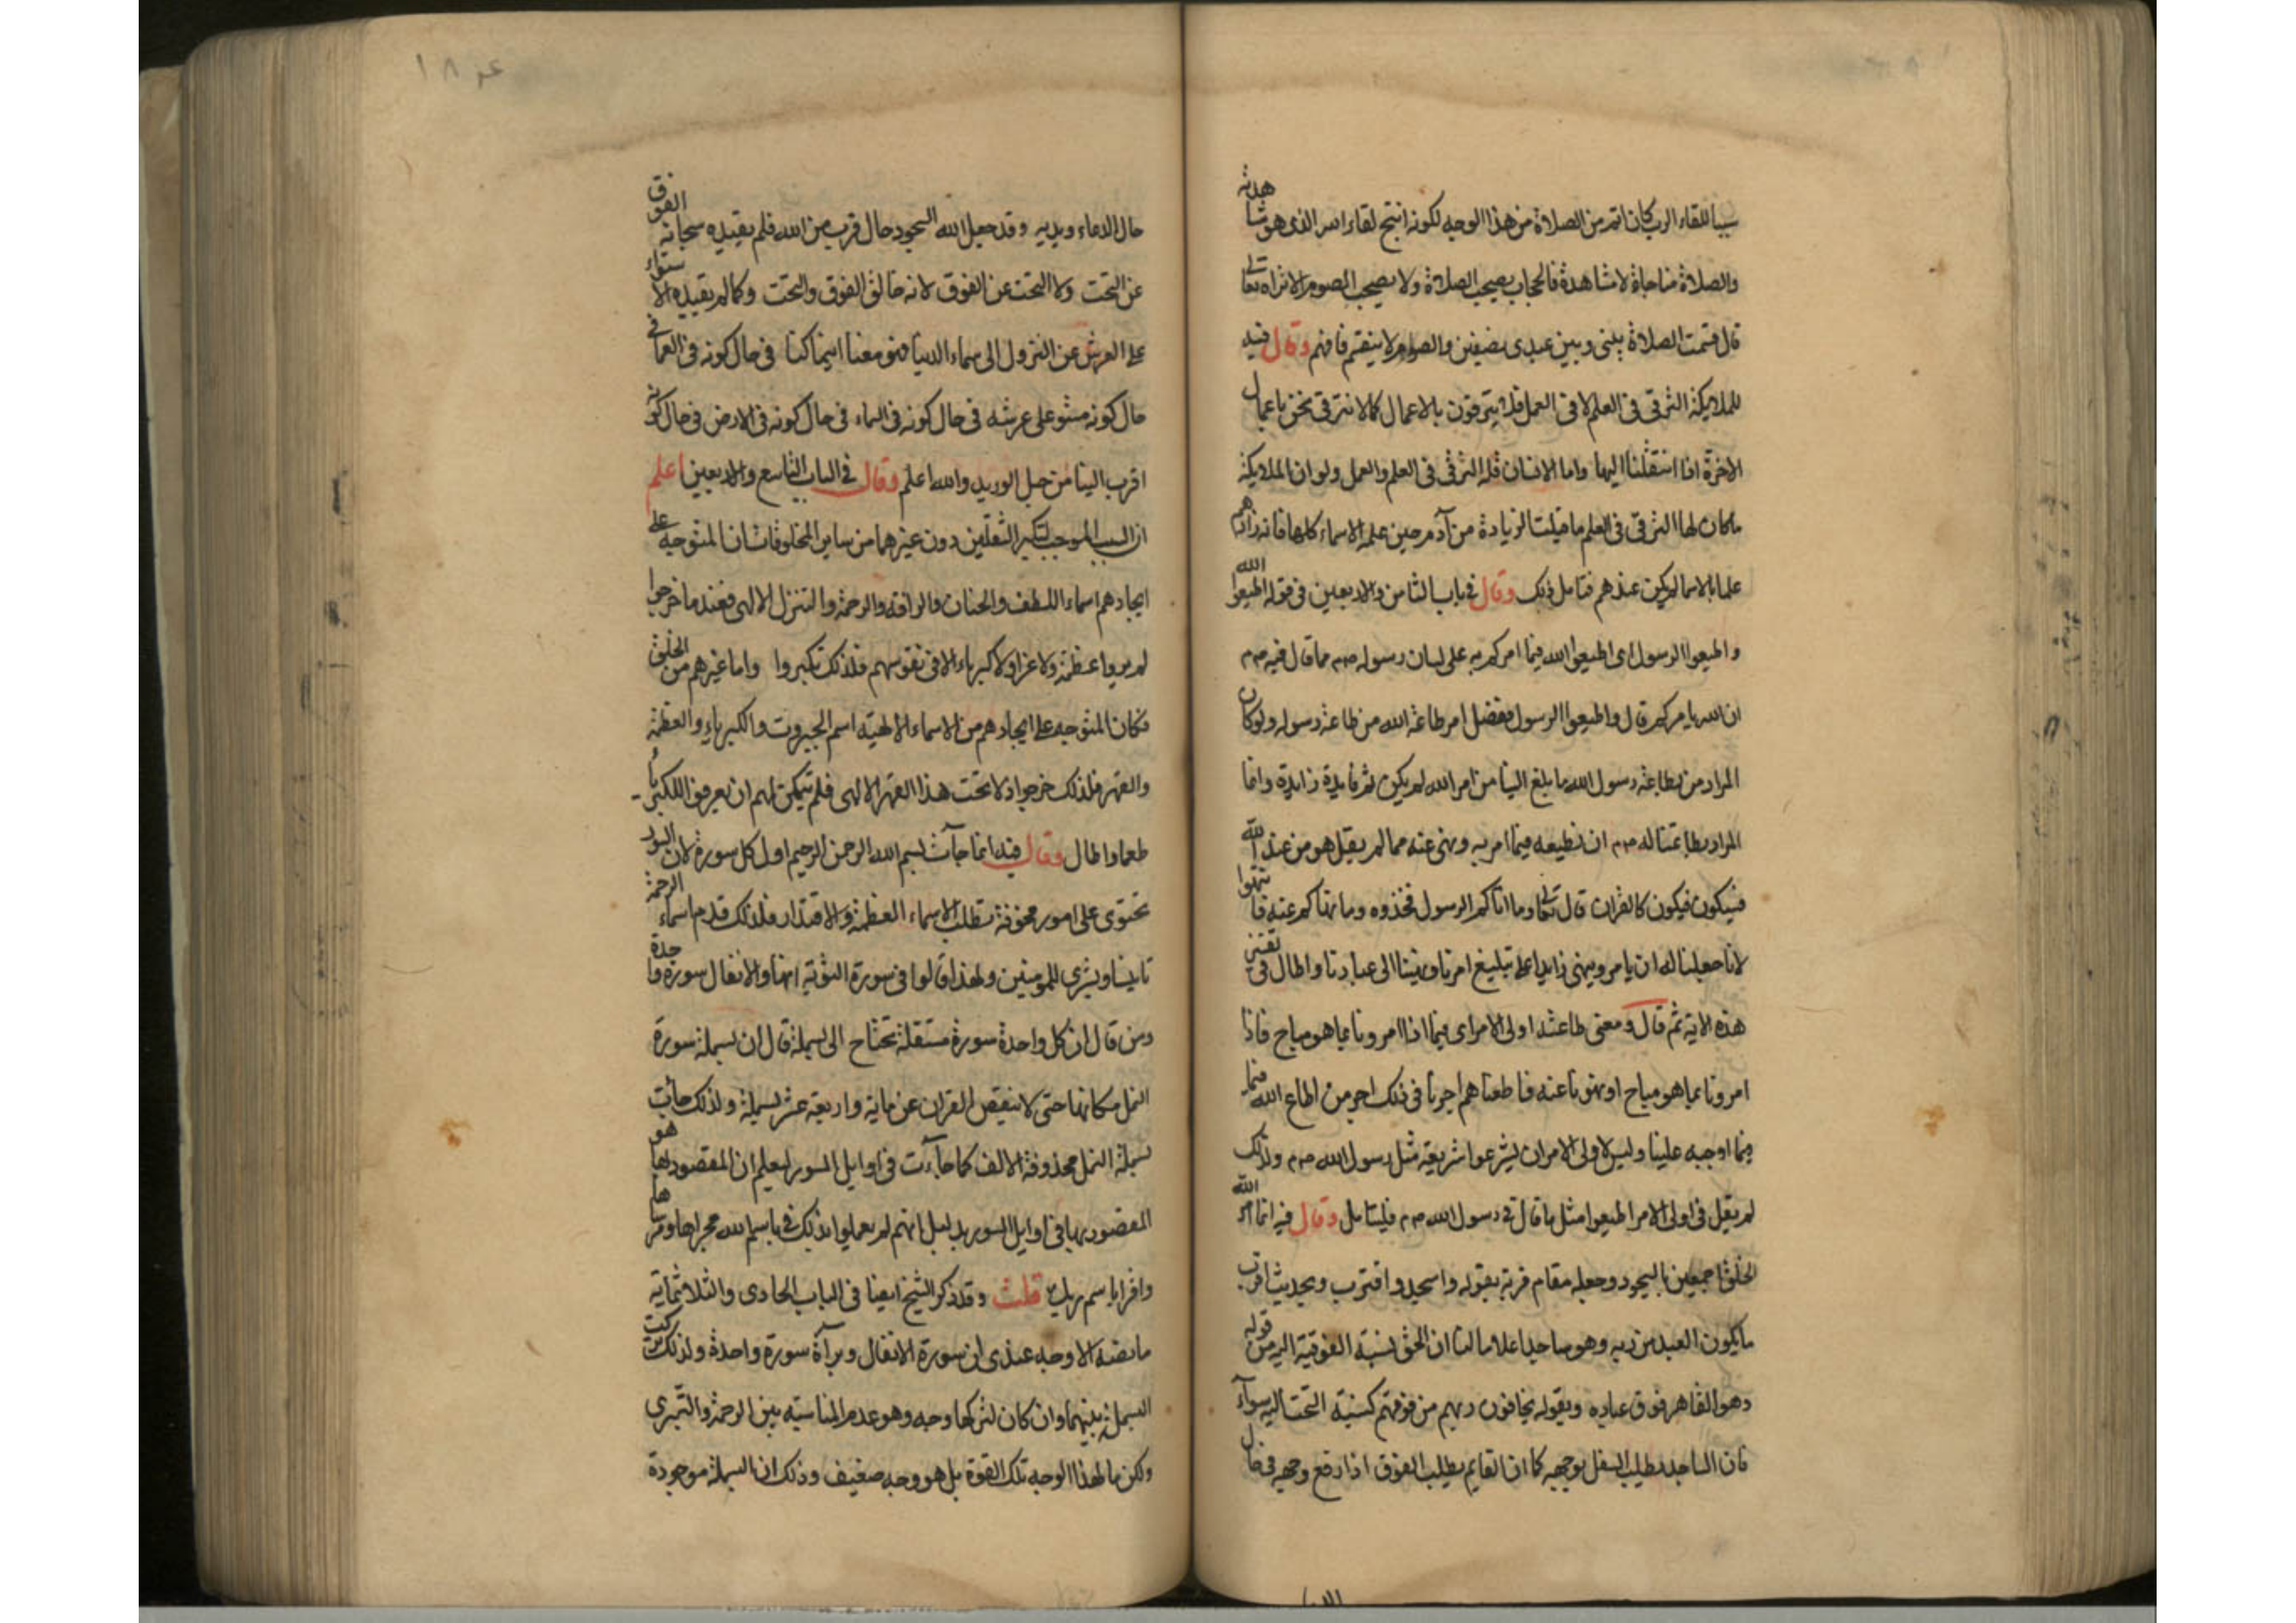 سببا للقاء الرب كان اتم من الصلاة من هذا الوجه لكونه انتج لقاء الله الذي هو مشاهدة
والصلاة مناجاة لا مشاهدة فالحجاب يصحب الصلاة ولا يصحب الصوم الا تراه تعالى
قال قسمت الصلاة بيني وبين عبدي نصفين والصوم لا ينقسم فافهم وقال فيه
للملايكة الترقي في العلم لا في العمل فلا يترقون بالاعمال كما لا نترقى نحن باعمال
الاخرة اذا انتقلنا اليها واما الانسان فله الترقي في العلم والعمل ولو ان الملايكة
ما كان لها الترقي في العلم ما قبلت الزيادة من آدم حين علمه الاسماء كلها فانه زادهم
علما بالاسما لم يكن عندهم فتامل ذلك وقال في باب الثامن والاربعين في قوله اطيعوا الله
واطيعوا الرسول اى اطيعوا الله فيما امركم به على لسان رسوله صم مما قال فيه صم
ان الله يامركم قال واطيعوا الرسول ففصل امر طاعة الله من طاعة رسوله ولو كان
المراد من بطاعة رسول الله ما بلغ الينا من امر الله لم يكن ثم فايدة زايدة وانما
المراد بطاعتنا له صم ان نطيعه فيما امر به ونهى عنه مما لم يقل هو من عند الله
فيكون فيكون كالقران قال تعالى وما اتاكم الرسول فخذوه وما نهاكم عنه فانتهوا
لانا جعلنا له ان يامر وينهى زايدا على تبليغ امرنا ونهينا الى عبادنا واطال في تفسير
هذه الاية ثم قال ومعنى طاعة اولى الامر اى فيما اذا امرونا بما هو مباح فاذا
امرونا بما هو مباح او نهونا عنه فاطعناهم اجرنا في ذلك اجر من اطاع الله فيما
فيما اوجبه علينا وليس لاولى الامر ان يشرعوا شريعة مثل رسول الله صم ولذلك
لم يقل في اولى الامر اطيعوا مثل ما قال في رسول الله صم فليتامل وقال فيه انما امر الله
الخلق اجمعين بالسجود وجعله مقام قربة بقوله واسجد واقترب وبحديث اقرب
ما يكون العبد من ربه وهو ساجد اعلاما لنا ان الحق نسبة الفوقية اليه من قوله
وهو القاهر فوق عباده وبقوله يخافون ربهم من فوقهم كنسبة التحت اليه سوآء
فان الساجد يطلب السفل بوجهه كما ان القايم يطلب الفوق اذا رفع وجهه في حال
حال الدعاء ويديه وقد جعل الله السجود حال قرب من الله فلم يقيده سبحانه الفوق
عن التحت ولا التحت عن الفوق لانه خالق الفوق والتحت وكما لم يقيده الاستواء
على العرش عن النزول الى سماء الدنيا فهو معنا اينما كنا في حال كونه في العما في
حال كونه مستو على عرشه في حال كونه في السماء في حال كونه في الارض في حال كونه
اقرب الينا من حبل الوريد والله اعلم وقال في الباب التاسع والاربعين اعلم
ان السبب الموجب لتكبر الثقلين دون غيرهما من ساير المخلوقات ان المتوجه على
ايجادهم اسماء اللطف والحنان والرافة والرحمة والتنزل الالهى فعند ما خرجوا
لم يروا عظمة ولا عزا ولا كبرياء الا في نفوسهم فلذلك تكبروا واما غيرهم من الخلق
فكان المتوجه على ايجادهم من الاسماء الالهية اسم الجبروت والكبرياء والعظمة
والقهر فلذلك خرجوا اذلا تحت هذا القهر الالهى فلم يتمكن لهم ان يعرفوا للكبرياء
طعما واطال وقال فيه انما جآت بسم الله الرحمن الرحيم اول كل سورة لان السور
تحتوى على امور مخوفة تطلب الاسماء العظمة والاقتدار فلذلك قدم اسماء الرحمة
تانيسا وبشرى للمومنين ولهذا قالوا في سورة التوبة انها والانفال سورة واحدة
ومن قال ان كل واحدة سورة مستقلة تحتاج الى بسملة قال ان بسملة سورة
النمل مكانها حتى لا ينقص القران عن ماية واربعة عشر بسملة ولذلك جآت
بسملة النمل محذوفة الالف كما جآءت في اوايل السور ليعلم ان المقصود بها هو
المقصود بها في اوايل السور بدليل انهم لم يعملوا ذلك في باسم الله مجراها ومرساها
واقرا باسم ربك قلت وقد ذكر الشيخ ايضا في الباب الحادى والثلاثماية
ما نصه الاوجه عندى ان سورة الانفال وبرآة سورة واحدة ولذلك تركت
البسملة بينهما وان كان لتركها وجه وهو عدم المناسبة بين الرحمة والتبرى
ولكن ما لهذا الوجه تلك القوة بل هو وجه ضعيف وذلك ان البسملة موجودة